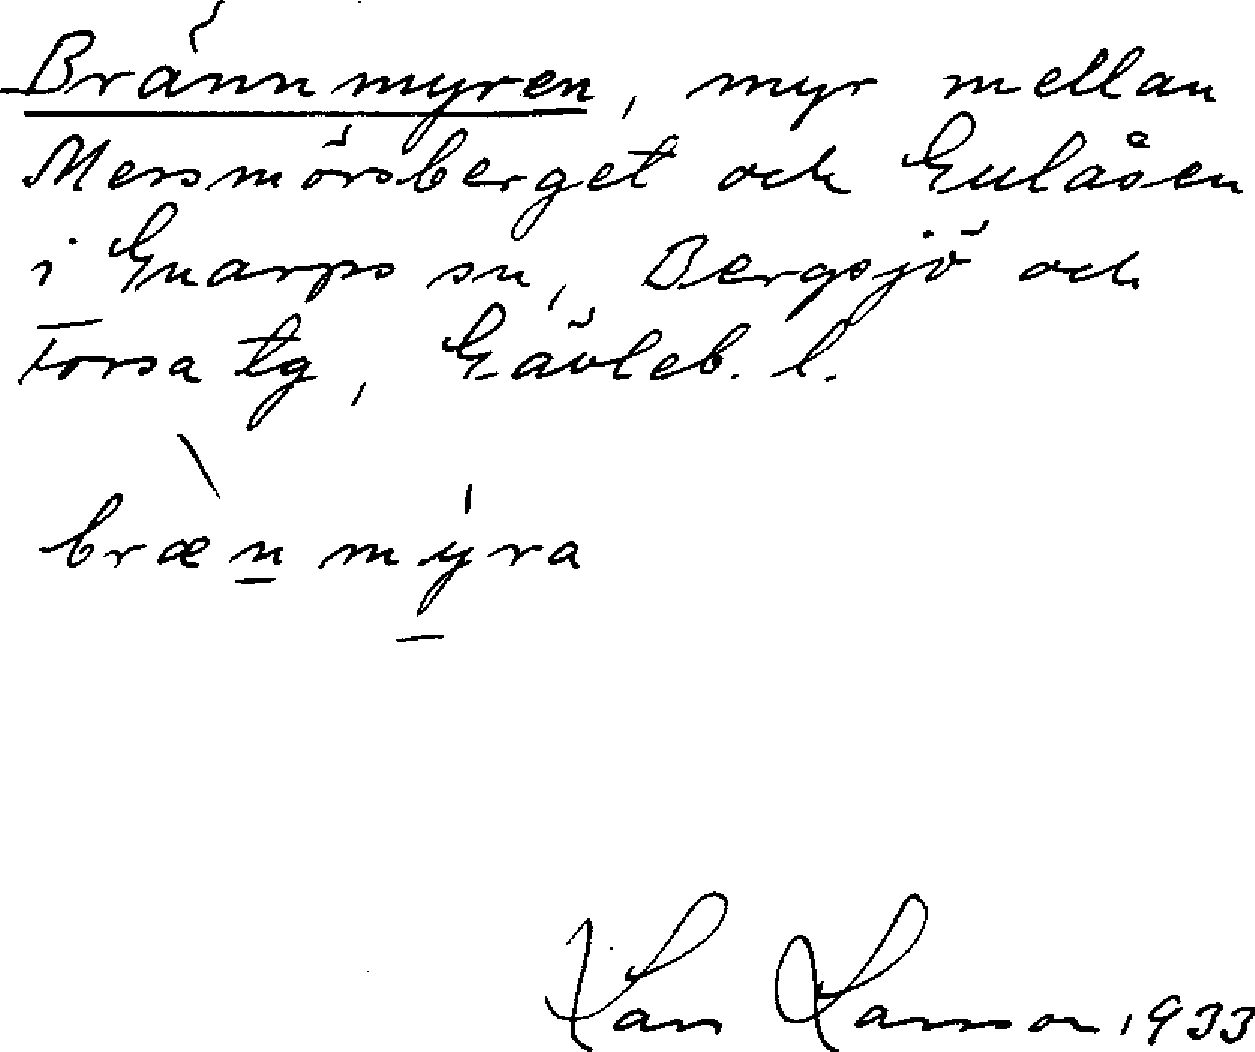 Brännmyren, myr mellan
Mersmörsberget och Gulåsen
i Gnarps sn, Bergsjö och
Forsa tg, Gävleb. l.
brænmýra
1933